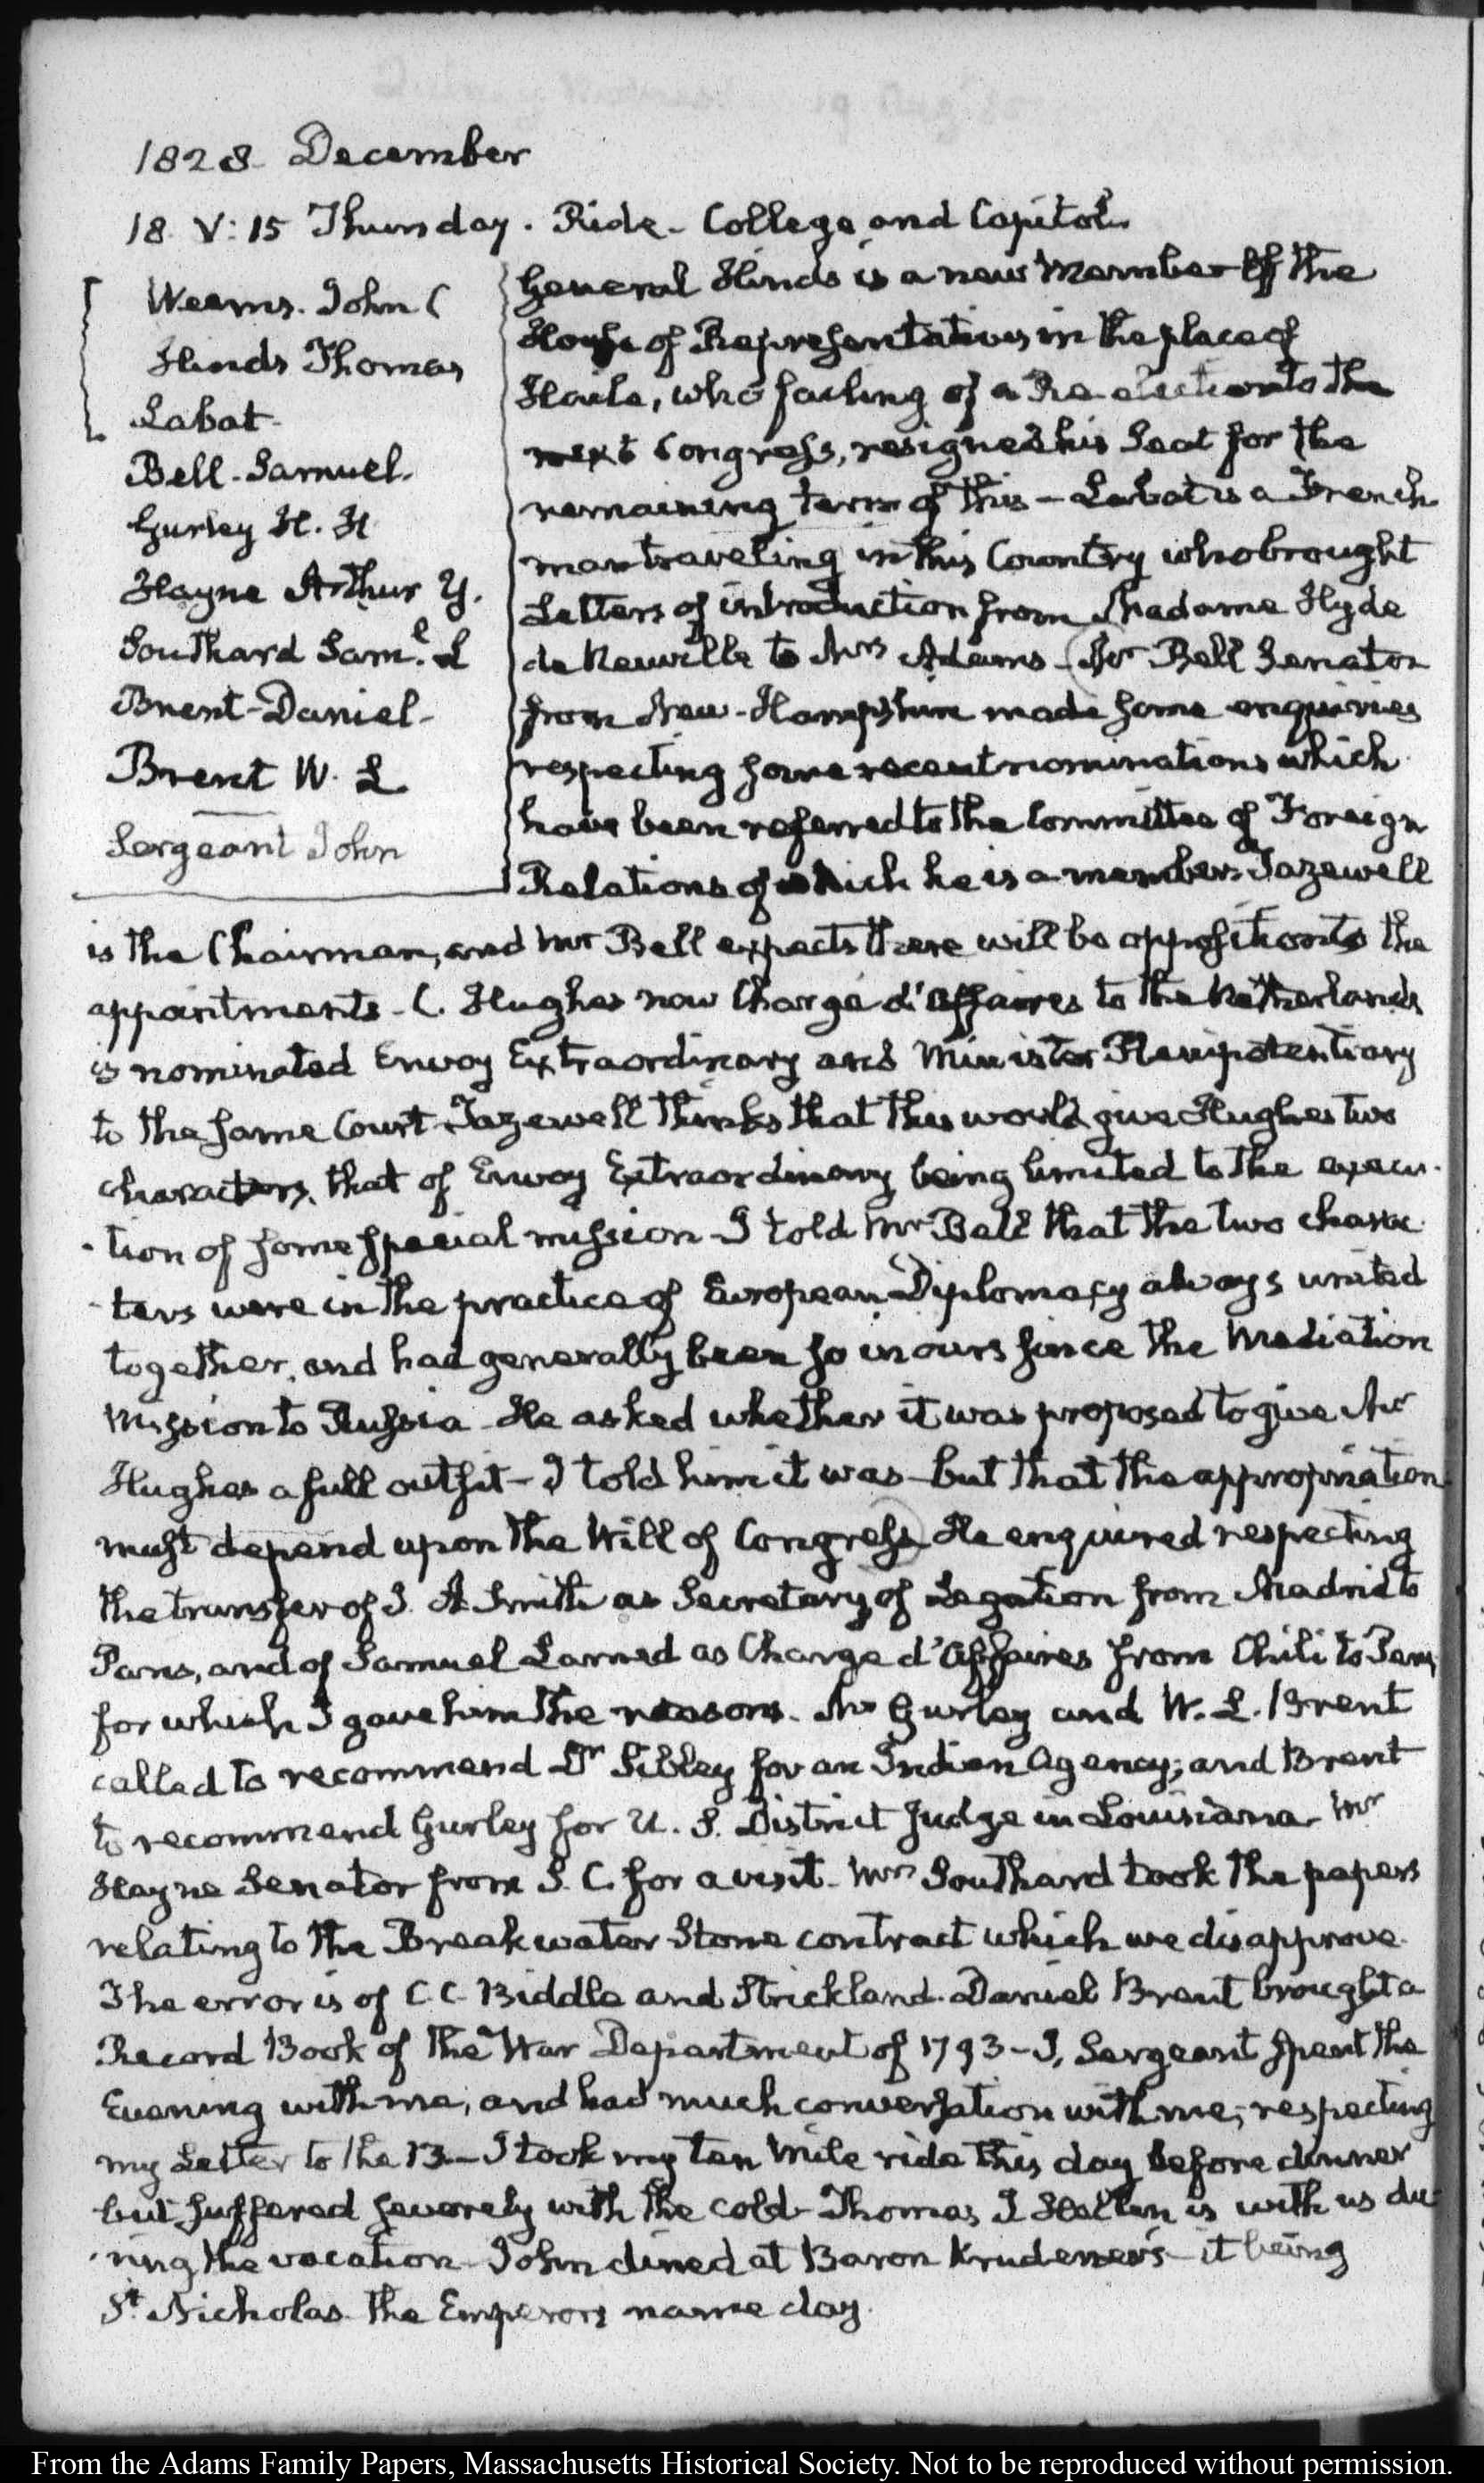 1828. December
18. V: 15 Thursday. Ride. College and Capitol.
Weems. John C
Hinds Thomas
Labat.
Bell. Samuel.
Gurley H. H
Hayne Arthur Y.
Southard Saml. L
Brent Daniel.
Brent W. L
Sergeant John
General Hinds is a new Member of the
House of Representatives in the place of
Haile, who failing of a Re election to the
next Congress, resigned his Seat for the
remaining term of this — Labat is a French
man traveling in this Country who brought
Letters of introduction from Madame Hyde
de Neuville to Mrs Adams — Mr Bell Senator
from New-Hampshire made some enquiries
respecting some recent nominations which
have been referred to the Committee of Foreign
Relations of which he is a member. Tazewell
is the Chairman, and Mr Bell expects there will be opposition to the
appointments. C. Hughes now Chargé d'Affaires to the Netherlands
is nominated Envoy Extraordinary and Minister Plenipotentiary
to the same Court. Tazewell thinks that this would give Hughes two
characters, that of Envoy Extraordinary being limited to the execu-
-tion of some special mission. I told Mr Bell that the two charac
-ters were in the practice of European Diplomacy always united
together, and had generally been so in ours since the Mediation
Mission to Russia. He asked whether it was proposed to give Mr
Hughes a full outfit — I told him it was — but that the appropriation
must depend upon the Will of Congress. He enquired respecting
the transfer of J. A Smith as Secretary of Legation from Madrid to
Paris, and of Samuel Larned as Charge d'Affaires from Chili to Peru,
for which I gave him the reasons. Mr Gurley and W. L. Brent
called to recommend Dr Sibley for an Indian Agency; and Brent
to recommend Gurley for U. S. District Judge in Louisiana. Mr
Hayne Senator from S. C. for a visit. Mr Southard took the papers
relating to the Breakwater Stone contract which we disapprove.
The error is of C. C. Biddle and Strickland. Daniel Brent brought a
Record Book of the War Department of 1793 — J. Sergeant spent the
Evening with me, and had much conversation with me, respecting
my Letter to the 13. — I took my ten Mile ride this day before dinner
but suffered severely with the cold. Thomas J Hellen is with us du
-ring the vacation. John dined at Baron Krudener's — it being
St. Nicholas the Emperors name day.
From the Adams Family Papers, Massachusetts Historical Society. Not to be reproduced without permission.